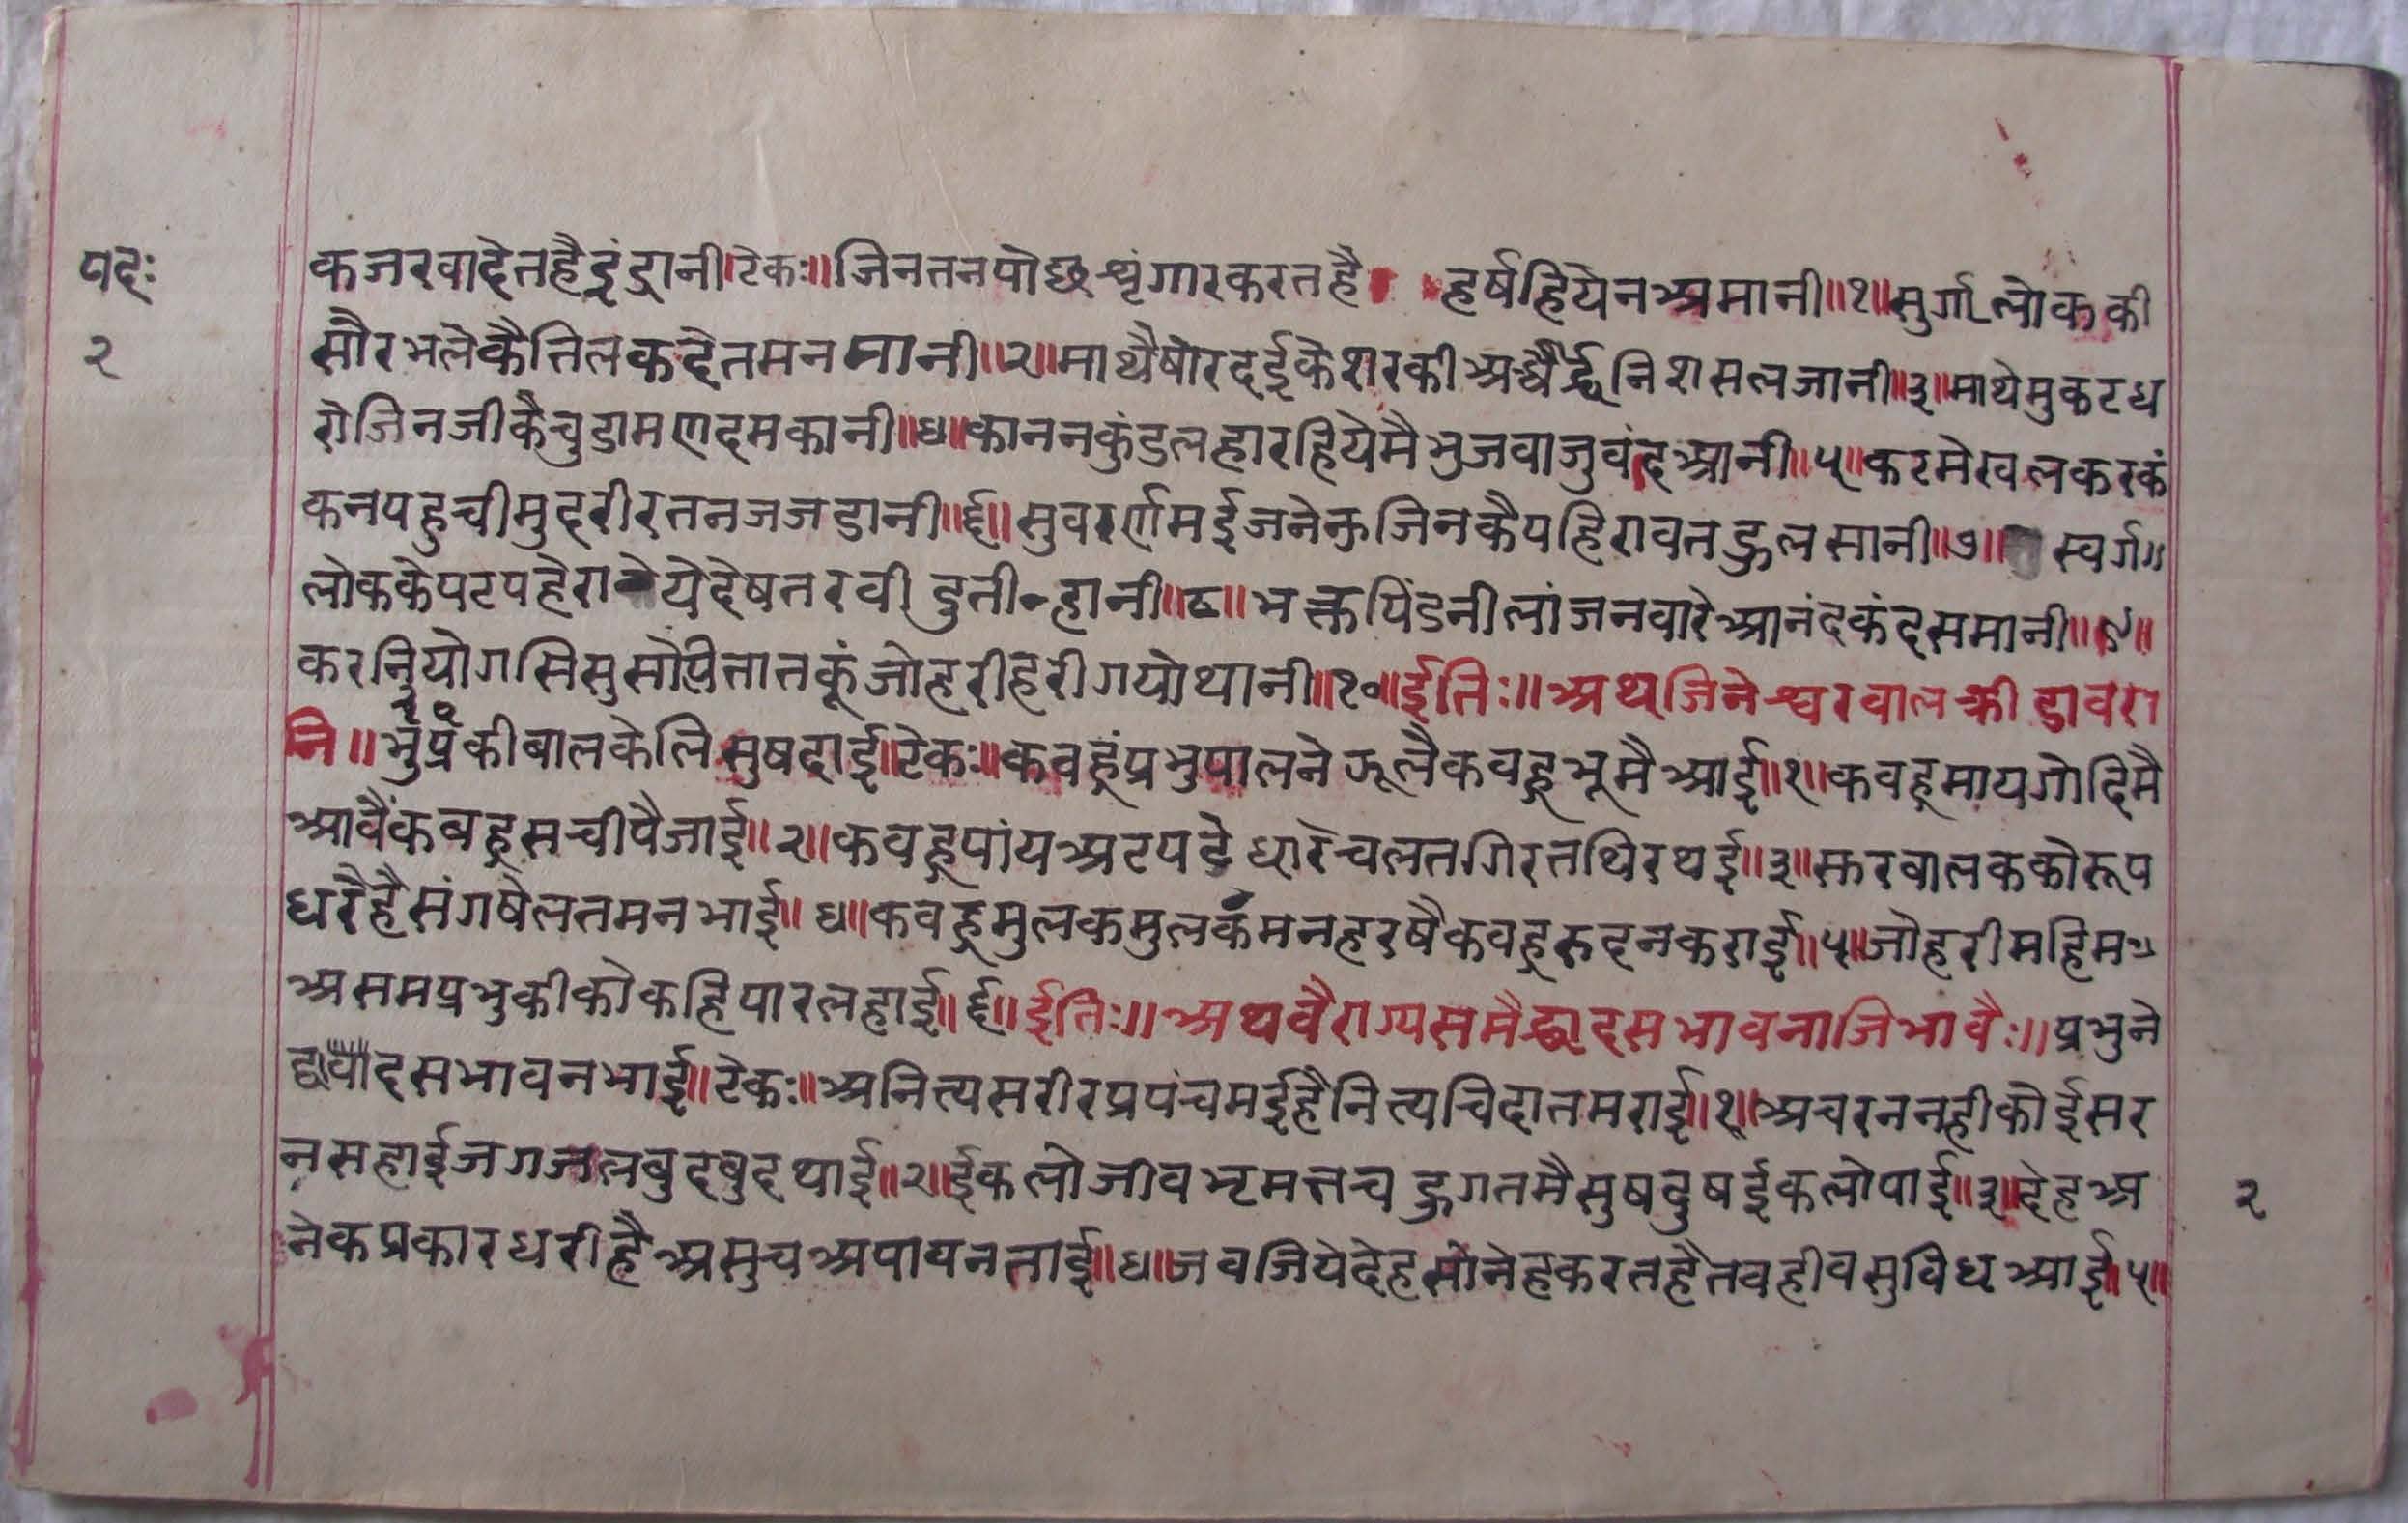 पदः
२
कजरवादेतहैइंद्रानी॥टेकः॥जिनतनपोछश्रृंगारकरतहै हर्षहियेनअमानी॥१॥सुर्गालोककी
सौरभलेकैतिलकदेतमनमानी॥२॥माथैषोरदईकेशरकी निशसलजानी॥३॥माथेमुकटध
रोजिनजीकैचुडामणदमकानी॥४॥काननकुंडलहारहियेमैभुजवाजुवंदआनी॥५॥कटमेखलकरकं
कनपहुचीमुदरीरतनजजडानी॥६॥सुवरर्णमईजनेऊजिनकैपहिरावतहुलसानी॥७॥ स्वर्ग॥
लोककेपटपहेरा येदेषतरवीदुतीन्हानी॥८॥भक्तपिंडनीलांजनवारेआनंदकंदसमानी॥९॥
करनियोगसिसुसोंपेतातकूंजोहरीहेरीगयोथानी॥१०॥ईतिः॥अथजिनेश्वरवालक्रीडावरा
नि॥ कीबालकेलिसुषदाई॥टेकः॥कवहूंप्रभुपालनेझूलैकवहूभूमैआई॥१॥कवहूमायगोदिमै
आवैंकबहूसचीपैजाई॥२॥कवहूपांयअटपडेधारेचलतगिरतथिरथई॥३॥सुरबालककोरूप
धरैहैसंगषेलतमनभाई॥४॥कवहूमुलकमुलकमनहरषैकवहूरुदनकराई॥५॥जोहरीमहिमा
असमप्रभुकीकोकहिपारलहाई॥६॥ईतिः॥अथवैराग्यसमैद्वादसभावनाजिभावैः॥प्रभुने
द्वादसभावनभाई॥टेकः॥अनित्यसरीरप्रपंचमईहैनित्यचिदातमराई॥१॥अचरननहीकोईसर
नसहाईजगजलवुदवुदथाई॥२॥ईकलोजीवभृमत्तचहुगतमैसुषदुषईकलोपाई॥३॥देहअ
नेकप्रकारधरीहैअसुचअपावनताई॥४॥जवजियेदेहसोनेहकरतहैतवहीवसुविधआई॥५॥
२